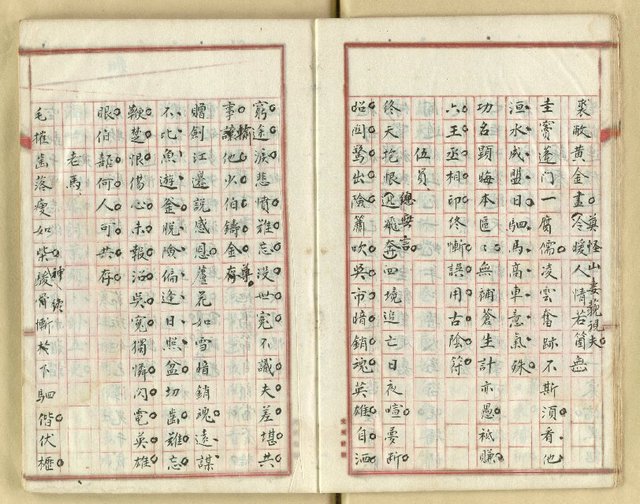 裘敝黃金盡冷暖人情若箇無
莫怪山妻藐視夫
圭竇蓬門一腐儒凌雲奮跡不斯須看他
洹水成盟日駟馬高車意氣殊
功名顯晦本區區無補蒼生計亦愚祗賺
六王丞相印終慚誤用古陰符
伍員
終天抱恨總無言四境追亡日夜喧夢斷
昭關驚出險簫吹吳市暗銷魂英雄自洒
窮途淚悲憤難忘沒世冤不識夫差堪共
事轉他少伯鑄金尊
贈劍江邊說感恩蘆花如雪暗銷魂遠謀
不比魚遊釜脫險偏逢日照盆切齒難忘
鞭楚恨傷心未報沼吳冤獨憐閃電英雄
眼伯嚭何人可共存
老馬
毛摧質落瘦如柴駿骨慚於下駟偕伏櫪
神績